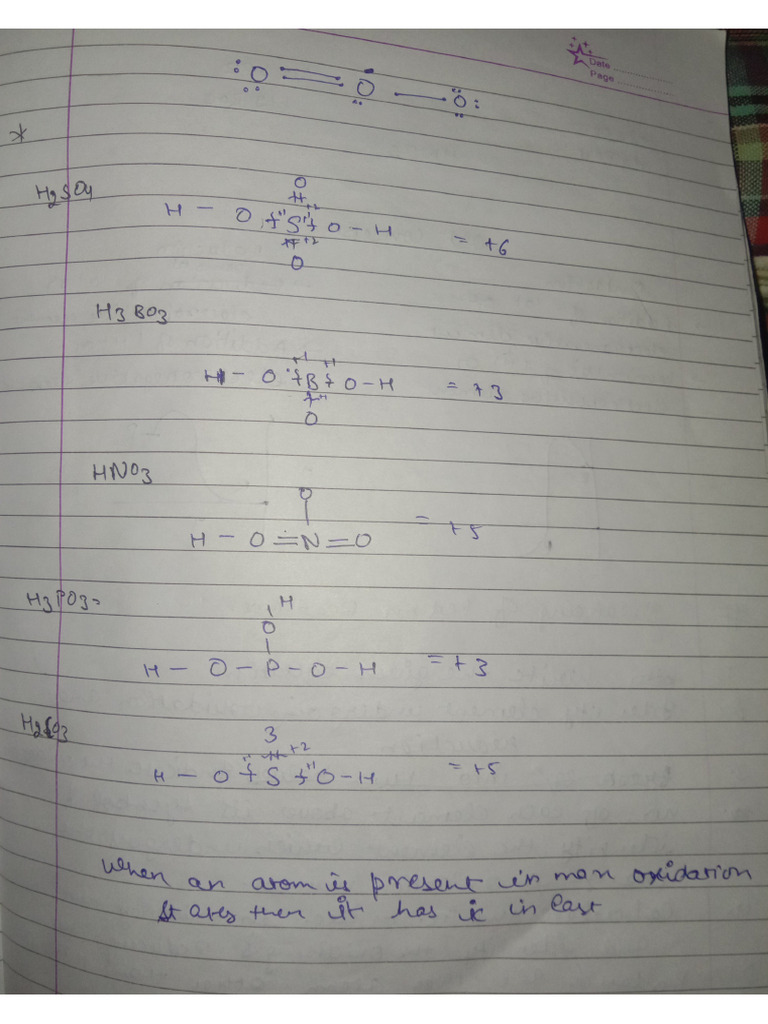 Date
Page
:O = O — O:
*
H2SO4
O
+2
H — O S O — H = +6
+2
O
H3BO3
+1 +1
H — O B O — H = +3
O
HNO3
O
H — O = N = O = +5
H3PO3=
H
O
H — O — P — O — H = +3
3
+2
H — O S O — H = +5
When an atom is present in max oxidation
states then it has ic in last